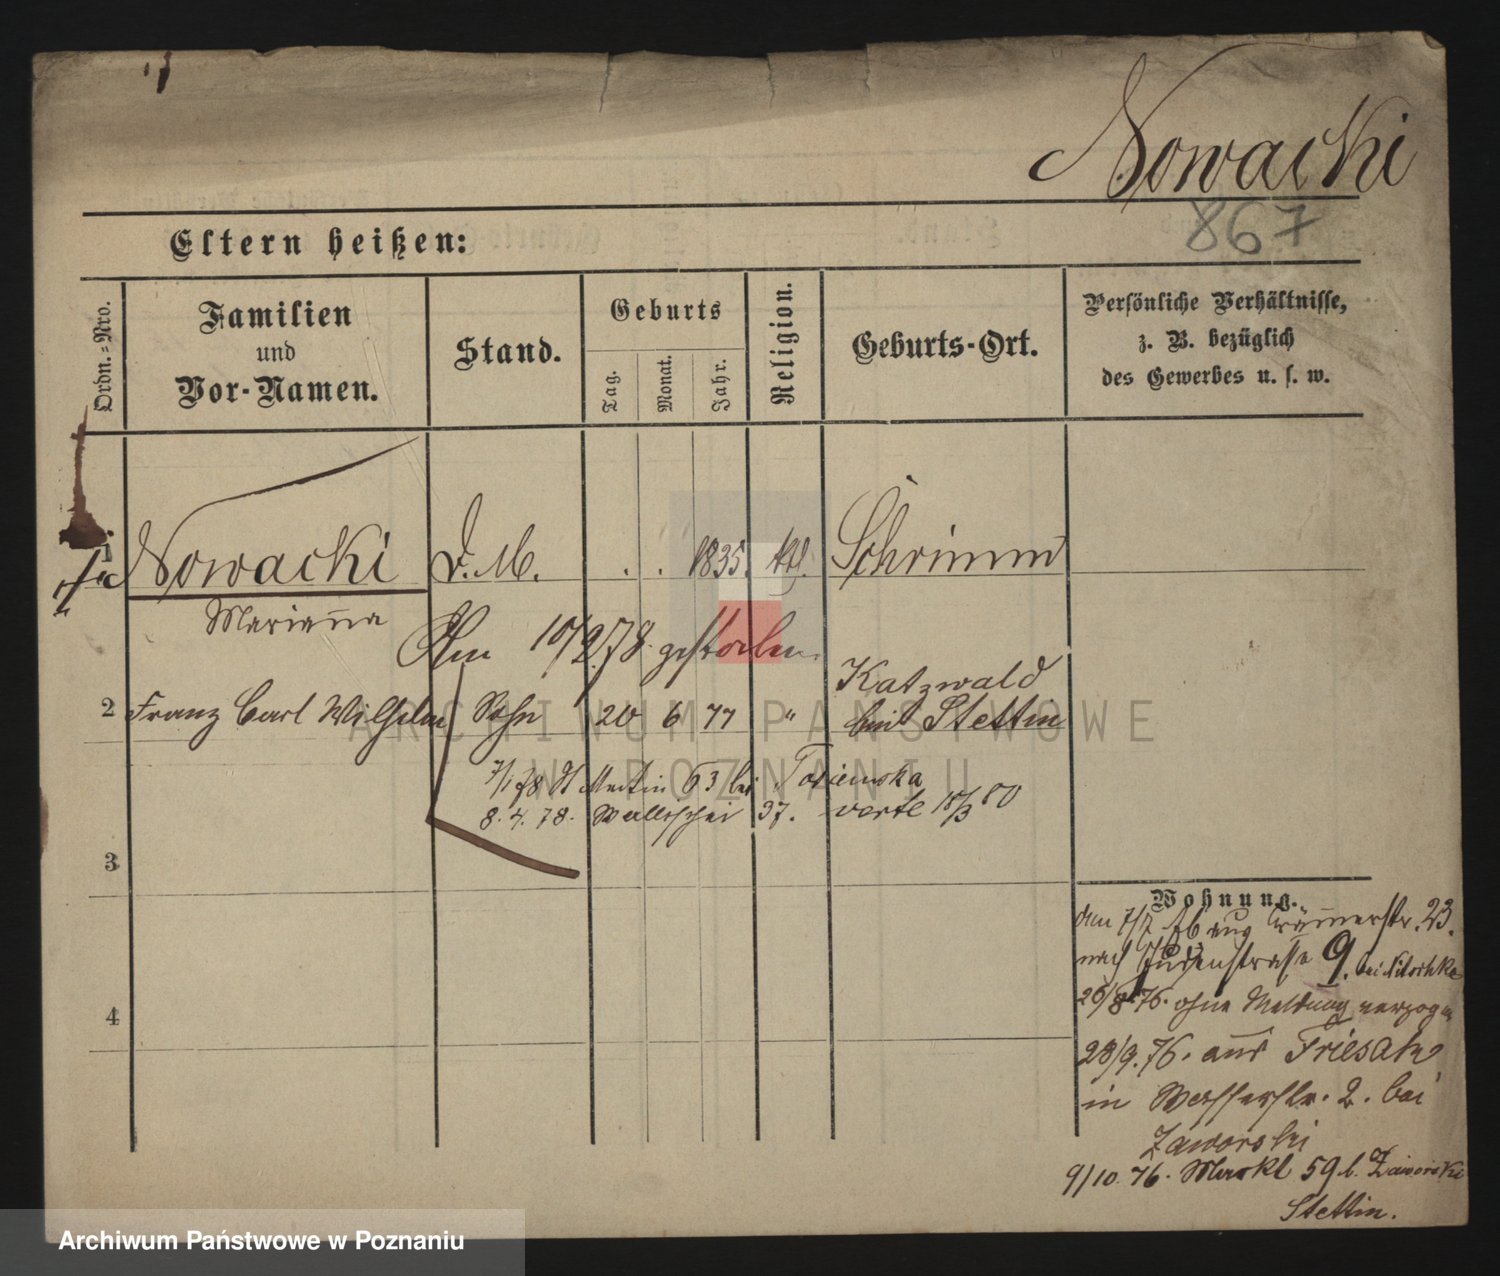 Nowacki
867
Eltern heißen:
Ordn.-Nro.
Familien
und
Vor-Namen.
Stand.
Geburts
Tag.
Monat.
Jahr.
Religion.
Geburts-Ort.
Persönliche Verhältnisse,
z. B. bezüglich
des Gewerbes u. s. w.
1 Nowacki D. M. . . 1835. kth. Schrimm
Marianna
Am 10/2 78. gestorben.
2 Franz Carl Wilhelm Sohn 20 6 77 " Katzwald
bei Stettin
7/1 78 St Martin 63 bei
8. 4. 78. Wallischei 37. verte 18/3 80
3
4
Wohnung.
den 7/7 76 aus Krämerstr. 23.
nach Judenstrasse 9. bei Nitschke
26/8 76. ohne Meldung verzogen
28/9. 76. aus Friesak
in Wasserstr. 2. bei
Zaworski
9/10. 76. Markt 59 b. Zaworski
Stettin.
ARCHIWUM PAŃSTWOWE
W POZNANIU
Archiwum Państwowe w Poznaniu